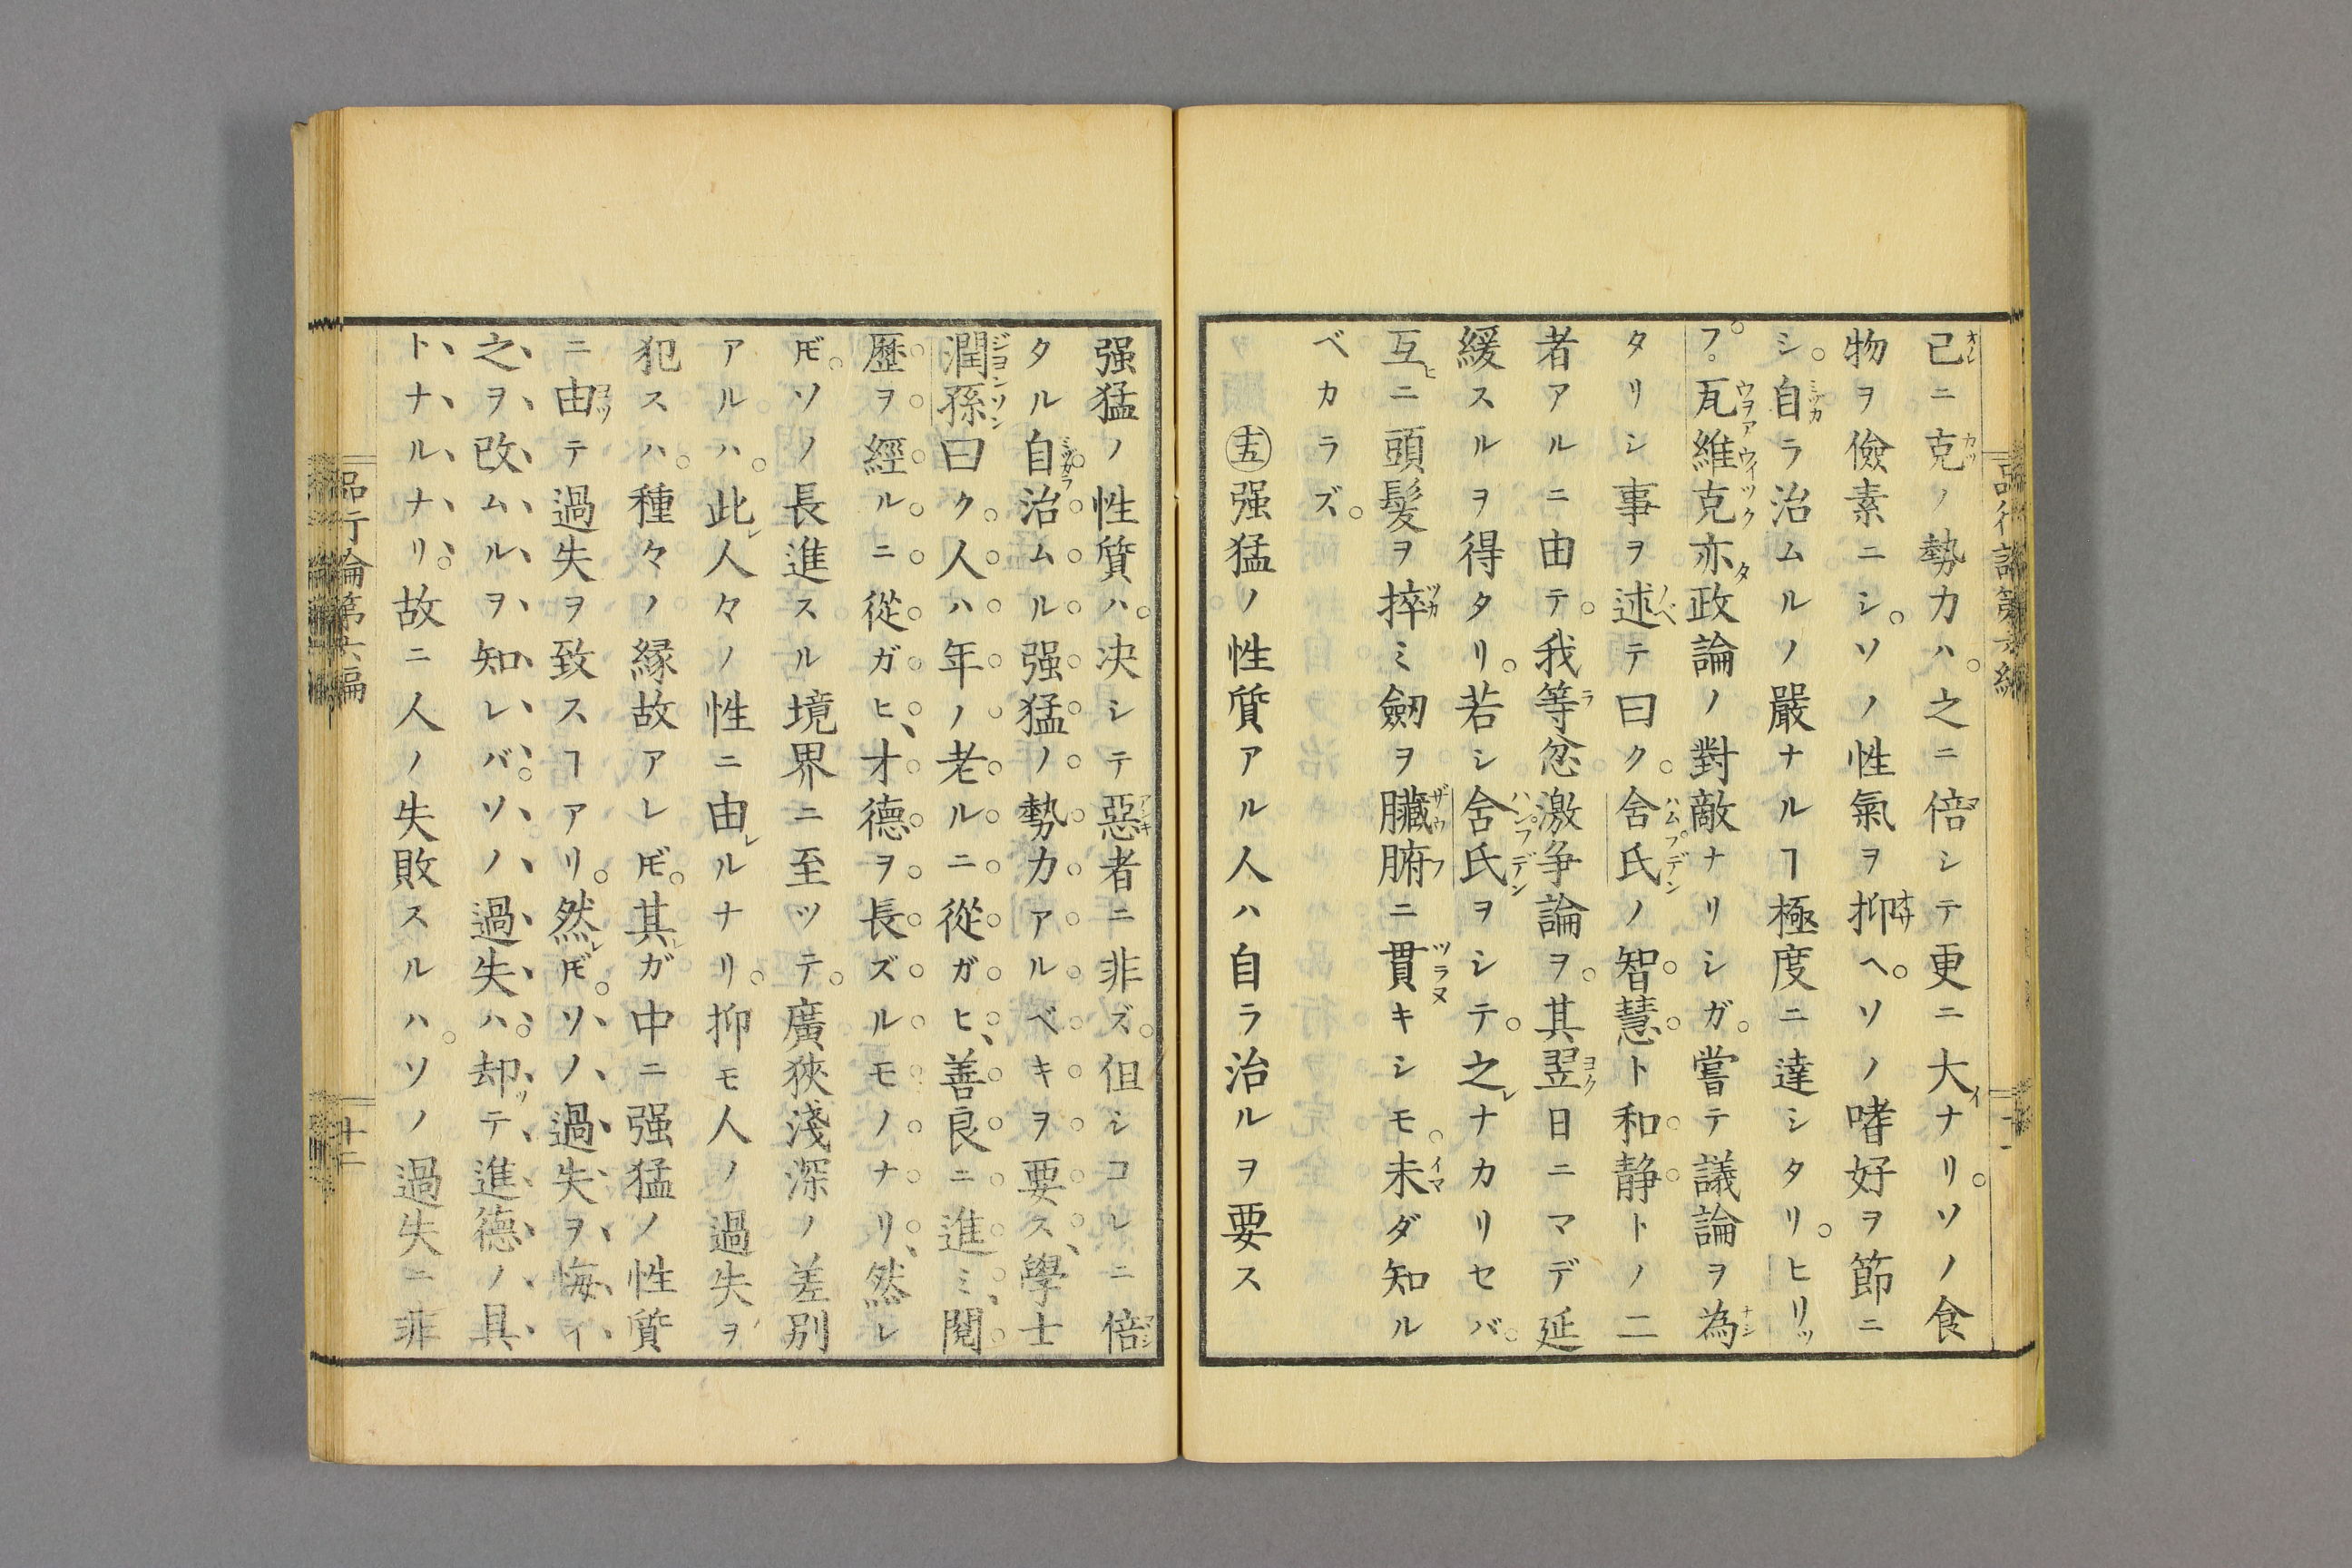 品行論第六編
十一
己ニ克ノ勢力ハ。之ニ倍シテ更ニ大ナリ。ソノ食
物ヲ儉素ニシ。ソノ性氣ヲ抑ヘ。ソノ嗜好ヲ節ニ
シ。自ラ治ムルノ嚴ナルヿ極度ニ達シタリ。ヒリッ
フ。瓦維克亦政論ノ對敵ナリシガ。嘗テ議論ヲ為
タリシ事ヲ述テ曰ク。舍氏ノ智慧ト和静トノ二
者アルニ由テ。我等忿激争論ヲ。其翌日ニマデ延
緩スルヲ得タリ。若シ舍氏ヲシテ。之ナカリセバ。
互ニ頭髪ヲ捽ミ劒ヲ臟腑ニ貫キシモ。未ダ知ル
ベカラズ。
㊄强猛ノ性質アル人ハ自ラ治ルヲ要ス
强猛ノ性質ハ。决シテ惡者ニ非ズ。但シコレニ倍
タル自治ムル强猛ノ勢力アルベキヲ要ス、學士
潤孫曰ク。人ハ年ノ老ルニ從ガヒ、善良ニ進ミ、閲
歷ヲ經ルニ從ガヒ、才德ヲ長ズルモノナリ、然レ
𪜈。ソノ長進スル境界ニ至ツテ。廣狹淺深ノ差別
アルハ。此人々ノ性ニ由ルナリ。抑モ人ノ過失ヲ
犯スハ。種々ノ縁故アレ𪜈。其ガ中ニ强猛ノ性質
ニ由テ過失ヲ致スヿアリ。然𪜈。ソノ過失ヲ悔イ
之ヲ改ムルヲ知レバ。ソノ過失ハ。却テ進德ノ具
トナルナリ。故ニ人ノ失敗スルハ。ソノ過失ニ非
品行論第六編
十二